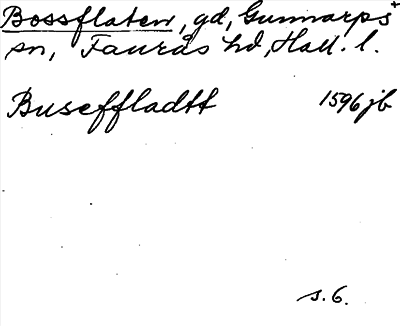 Bossflaten, gd, Gunnarps+
sn, Faurås hd, Hall. l.
Buseffladtt 1596 jb
s. 6.